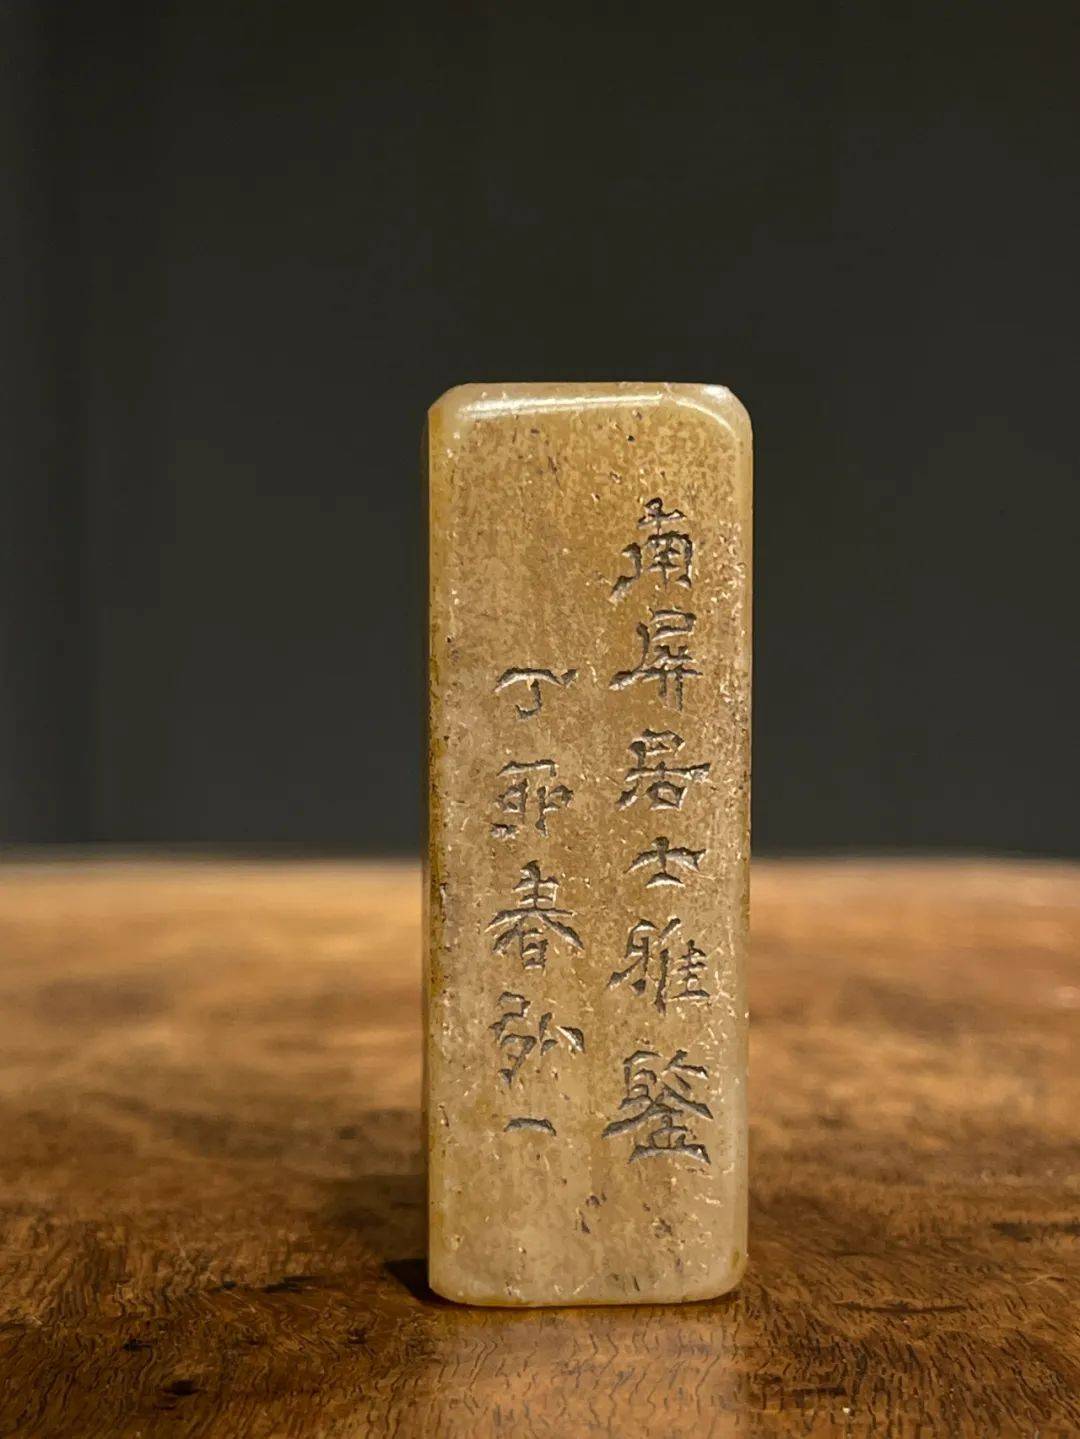 南屏居士雅鑒
丁卯春弘一